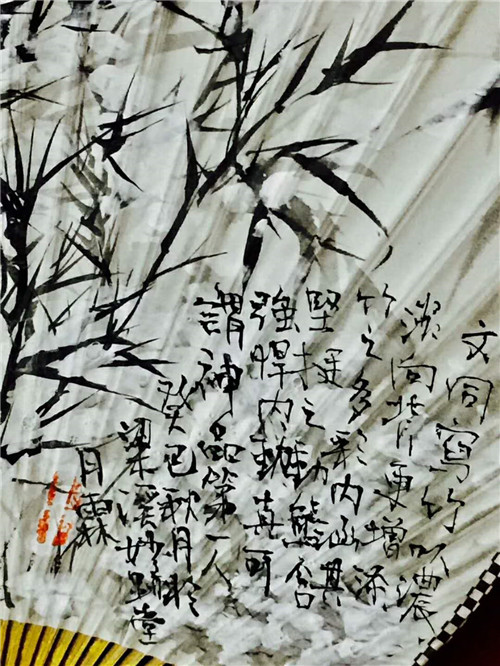 文同寫竹以濃
向背更增添
竹之多彩内涵其
堅挺之動態含
強悍内真可
謂神品第一人
癸巳秋月於
梁溪妙堂
月霖